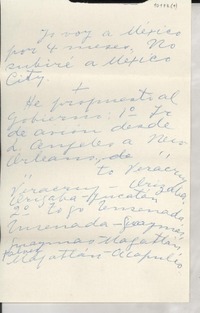 Yo voy a México
por 4 meses. No
subiré a Mexico
City.
+
He propuesto al
Gobierno: 1º Ir
de avión desde
L. Angeles a New
Orleans, de "
" to Veracruz
Veracruz - Orizaba.
Orizaba - Yucatán
2º Ensenada
Ensenada - Guaymas
Guaymas - Mazatlán
Mazatlán - Acapulco